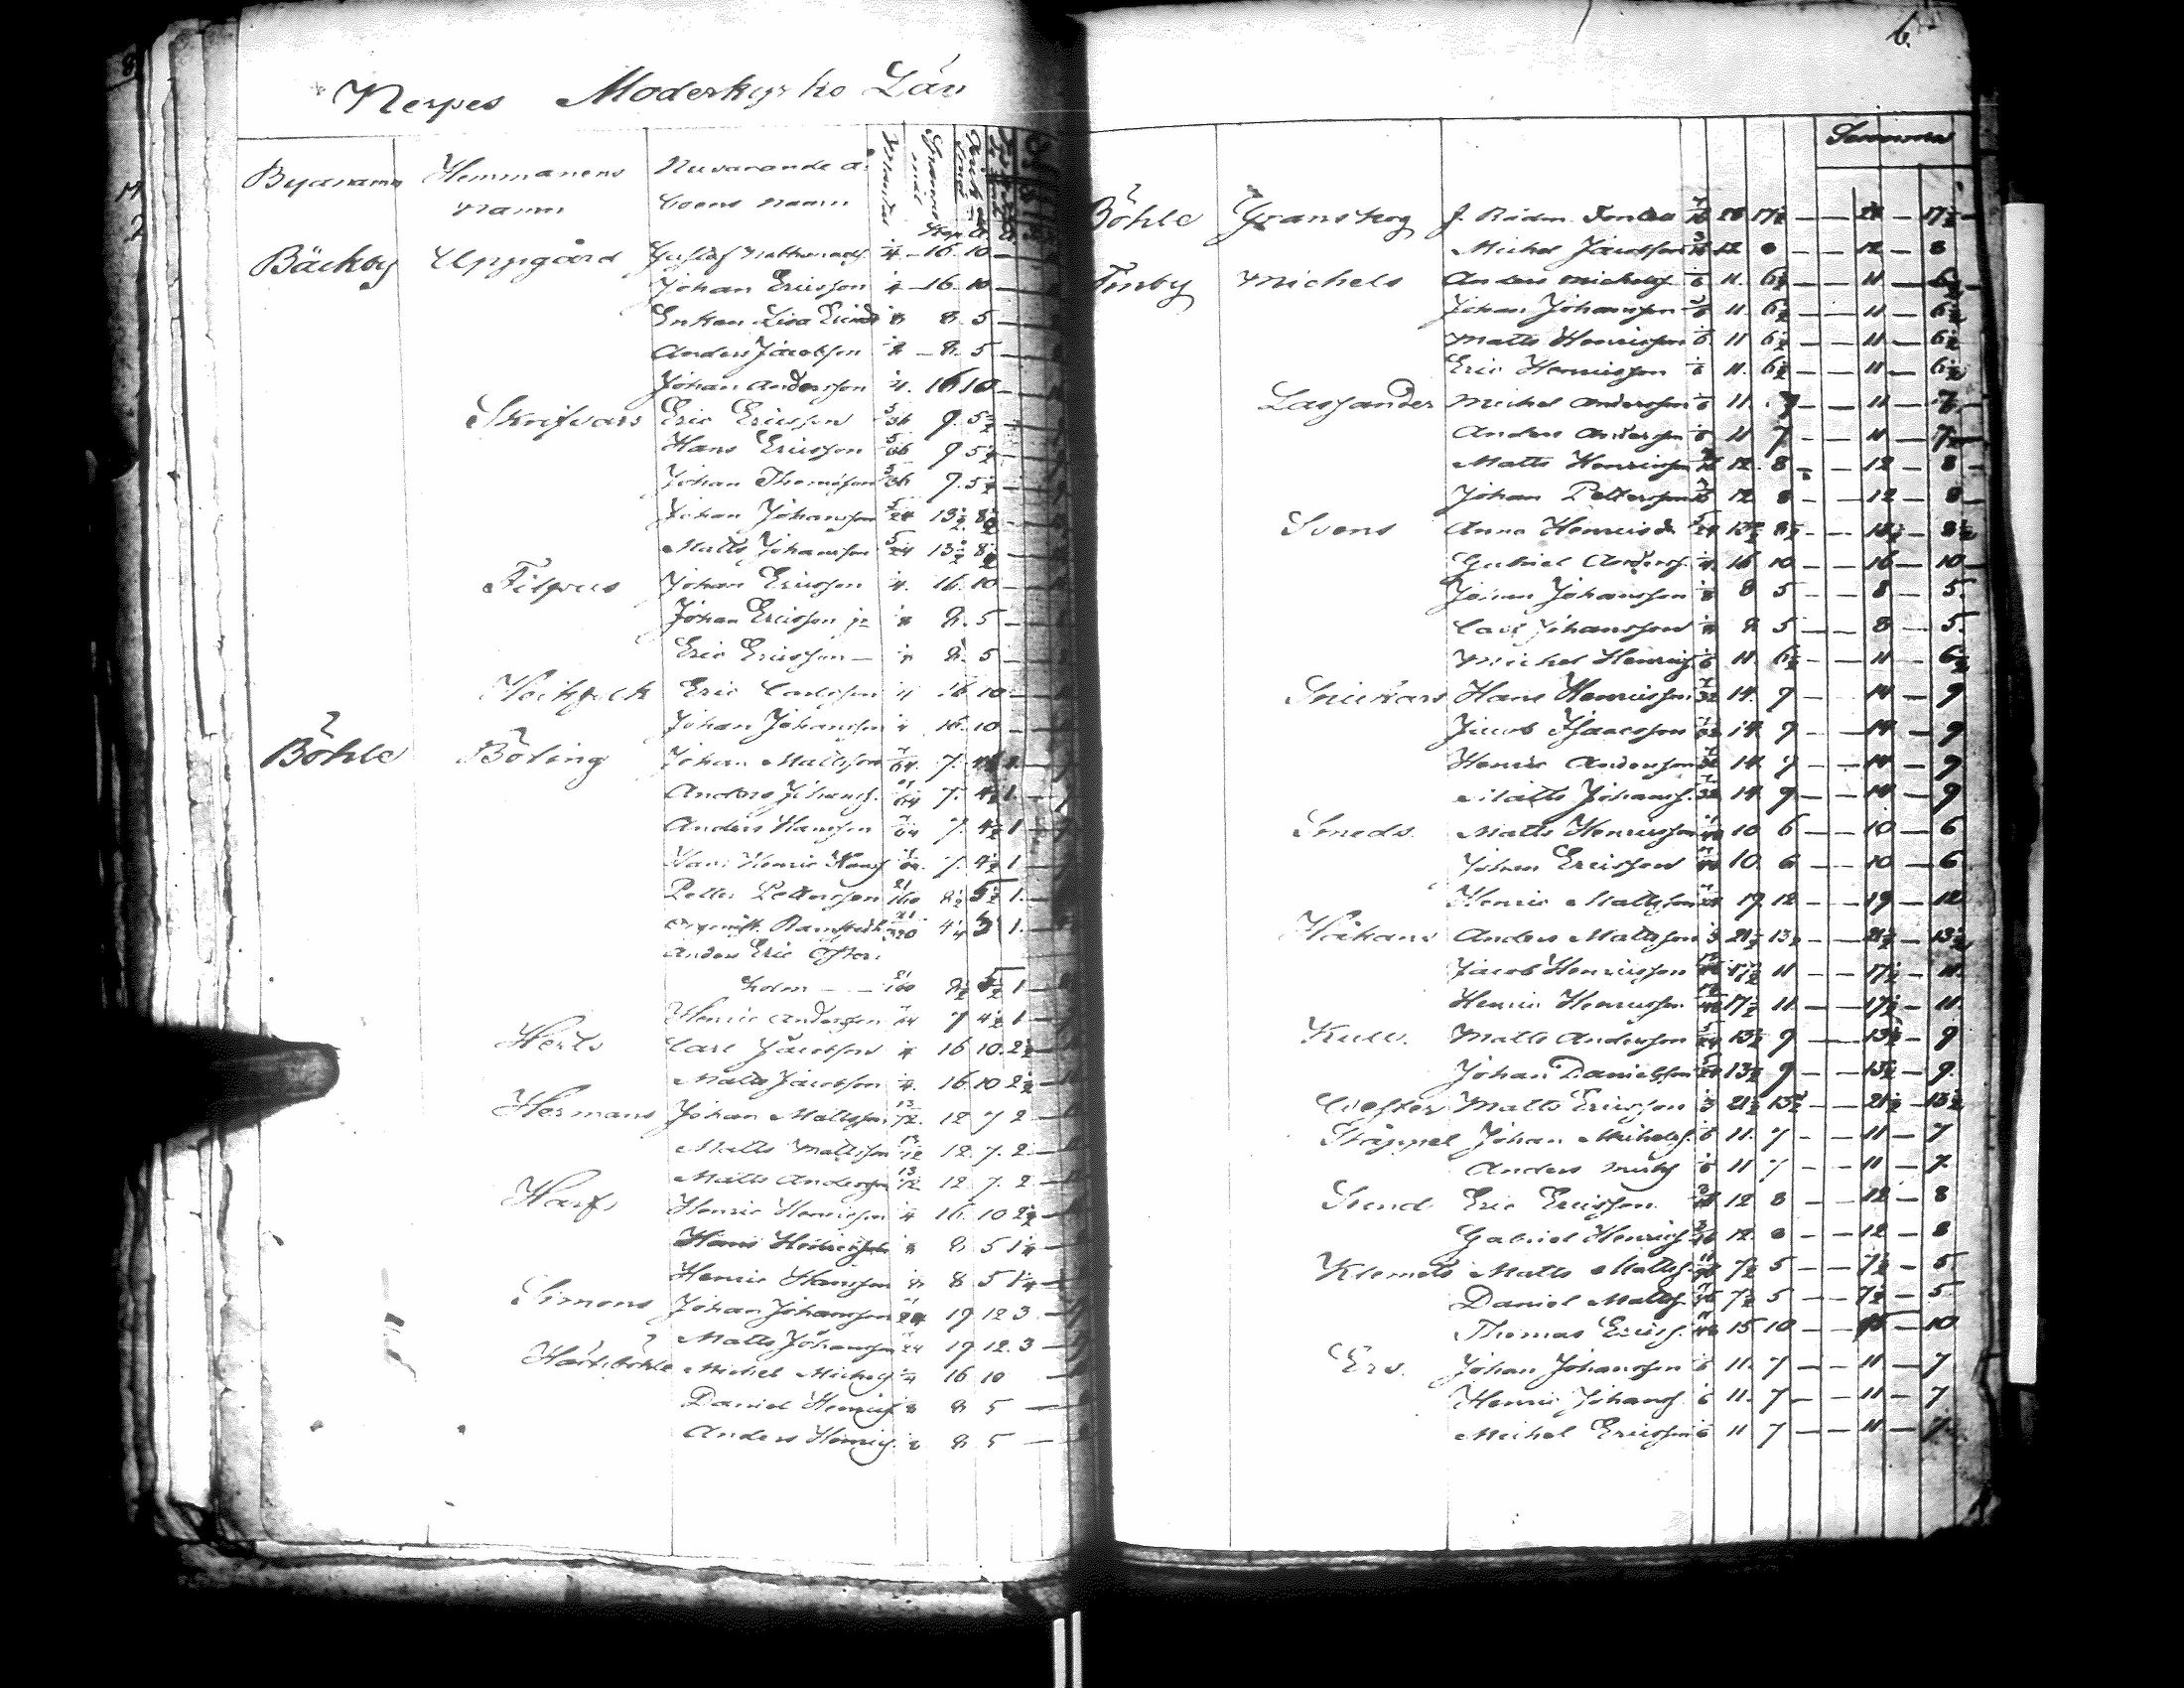 Nerpes Moderkyrko Län
Byanamn Hemmanens namn Nuvarande å- boens namn
Bäckby Uppgård Gustaf 1/4 16 10
Johan Ericsson 1/4 16 10
Enkan Lisa 1/8 8 5
Anders Jacobsson 1/8 8 5
Johan Andersson 1/4 16 10
Skrifvars Eric Ericsson 5/36 9 5 1/2
Hans Ericsson 5/36 9 5 1/2
Johan Thomasson 5/36 9 5 1/2
Johan Johansson 5/24 13 1/2 8 1/2
Matts Johansson 5/24 13 1/2 8 1/2
Filpus Johan Ericsson 1/4 16 10
Johan Ericsson jr 1/8 8 5
Eric Ericsson 1/8 8 5
Eric Carlsson 1/4 16 10
Johan Johansson 1/4 16 10
Böhle Böling Johan Mattsson 7/64 7
Anders Johanss. 7/64 7 4 1/2 1
Anders Hansson 7/64 7 4 1/2 1
Henric Hanss 7/64 7 4 1/2 1
Petter Pettersson 21/160 8 1/2 5 1/2 1
Ramstedt 21/320 4 1/4 3 1
Anders Eric Öster-
holm 21/160 8 1/2 5 1/2 1
Henric Andersson 7/64 7 4 1/2 1
Herts Carl Jacobsson 1/4 16 10 2 1/2
Matts Jacobsson 1/4 16 10 2 1/2
Hermans Johan Mattsson 13/72 12 7 2
Matts Mattsson 13/72 12 7 2
Matts Andersson 13/72 12 7 2
Harf Henric Henricsson 1/4 16 10 2 1/2
1/8 8 5 1 1/4
Henric Hansson 1/8 8 5 1 1/4
Simons Johan Johansson 7/24 19 12 3
Matts Johansson 7/24 19 12 3
Michel Michelss 1/4 16 10
Daniel Henricss 1/8 8 5
Anders Henricss 1/8 8 5
6.
Summa
Böhle Granskog J. 28 17 1/2 28 17 1/2
Michel Jacobsson 3/16 12 8 12 8
Finby Michels Anders Michelss 1/6 11 6 1/2 11 6 1/2
Johan Johansson 1/6 11 6 1/2 11 6 1/2
Matts Henricsson 1/6 11 6 1/2 11 6 1/2
Eric Henricsson 1/6 11 6 1/2 11 6 1/2
Lassander Michel Andersson 1/6 11 7 11 7
Anders Andersson 1/6 11 7 11 7
Matts Henricsson 3/16 12 8 12 8
Johan Pettersson 3/16 12 8 12 8
Svens Anna Henricsdr 5/24 13 1/2 8 1/2 13 1/2 8 1/2
Gabriel Anderss 1/4 16 10 16 10
Johan Johansson 1/8 8 5 8 5
Carl Johansson 1/8 8 5 8 5
Michel Henricss 1/6 11 6 1/2 11 6 1/2
Snickars Hans Henricsson 7/32 14 9 14 9
Jacob Isaacsson 7/32 14 9 14 9
Henric Andersson 7/32 14 9 14 9
Matts Johanss. 7/32 14 9 14 9
Smeds Matts Henricsson 10 6 10 6
Johan Ericsson 10 6 10 6
Henric Mattsson 7/24 19 12 19 12
Håkans Anders Mattsson 1/3 21 1/2 13 1/2 21 1/2 13 1/2
Jacob Henricsson 17 1/2 11 17 1/2 11
Henric Henricsson 17 1/2 11 17 1/2 11
Kull Matts Andersson 5/24 13 1/2 9 13 1/2 9
Johan Danielsson 5/24 13 1/2 9 13 1/2 9
Wester Matts Ericsson 1/3 21 1/2 13 1/2 21 1/2 13 1/2
Johan Michelss. 1/6 11 7 11 7
Anders 1/6 11 7 11 7
Sund Eric Ericsson 3/16 12 8 12 8
Gabriel Henricss 3/16 12 8 12 8
Klemets Matts Mattss 7 1/2 5 7 1/2 5
Daniel Mattss 7 1/2 5 7 1/2 5
Thomas Ericss. 15 10 15 10
Ers. Johan Johansson 1/6 11 7 11 7
Henric Johanss 1/6 11 7 11 7
Michel Ericsson 1/6 11 7 11 7